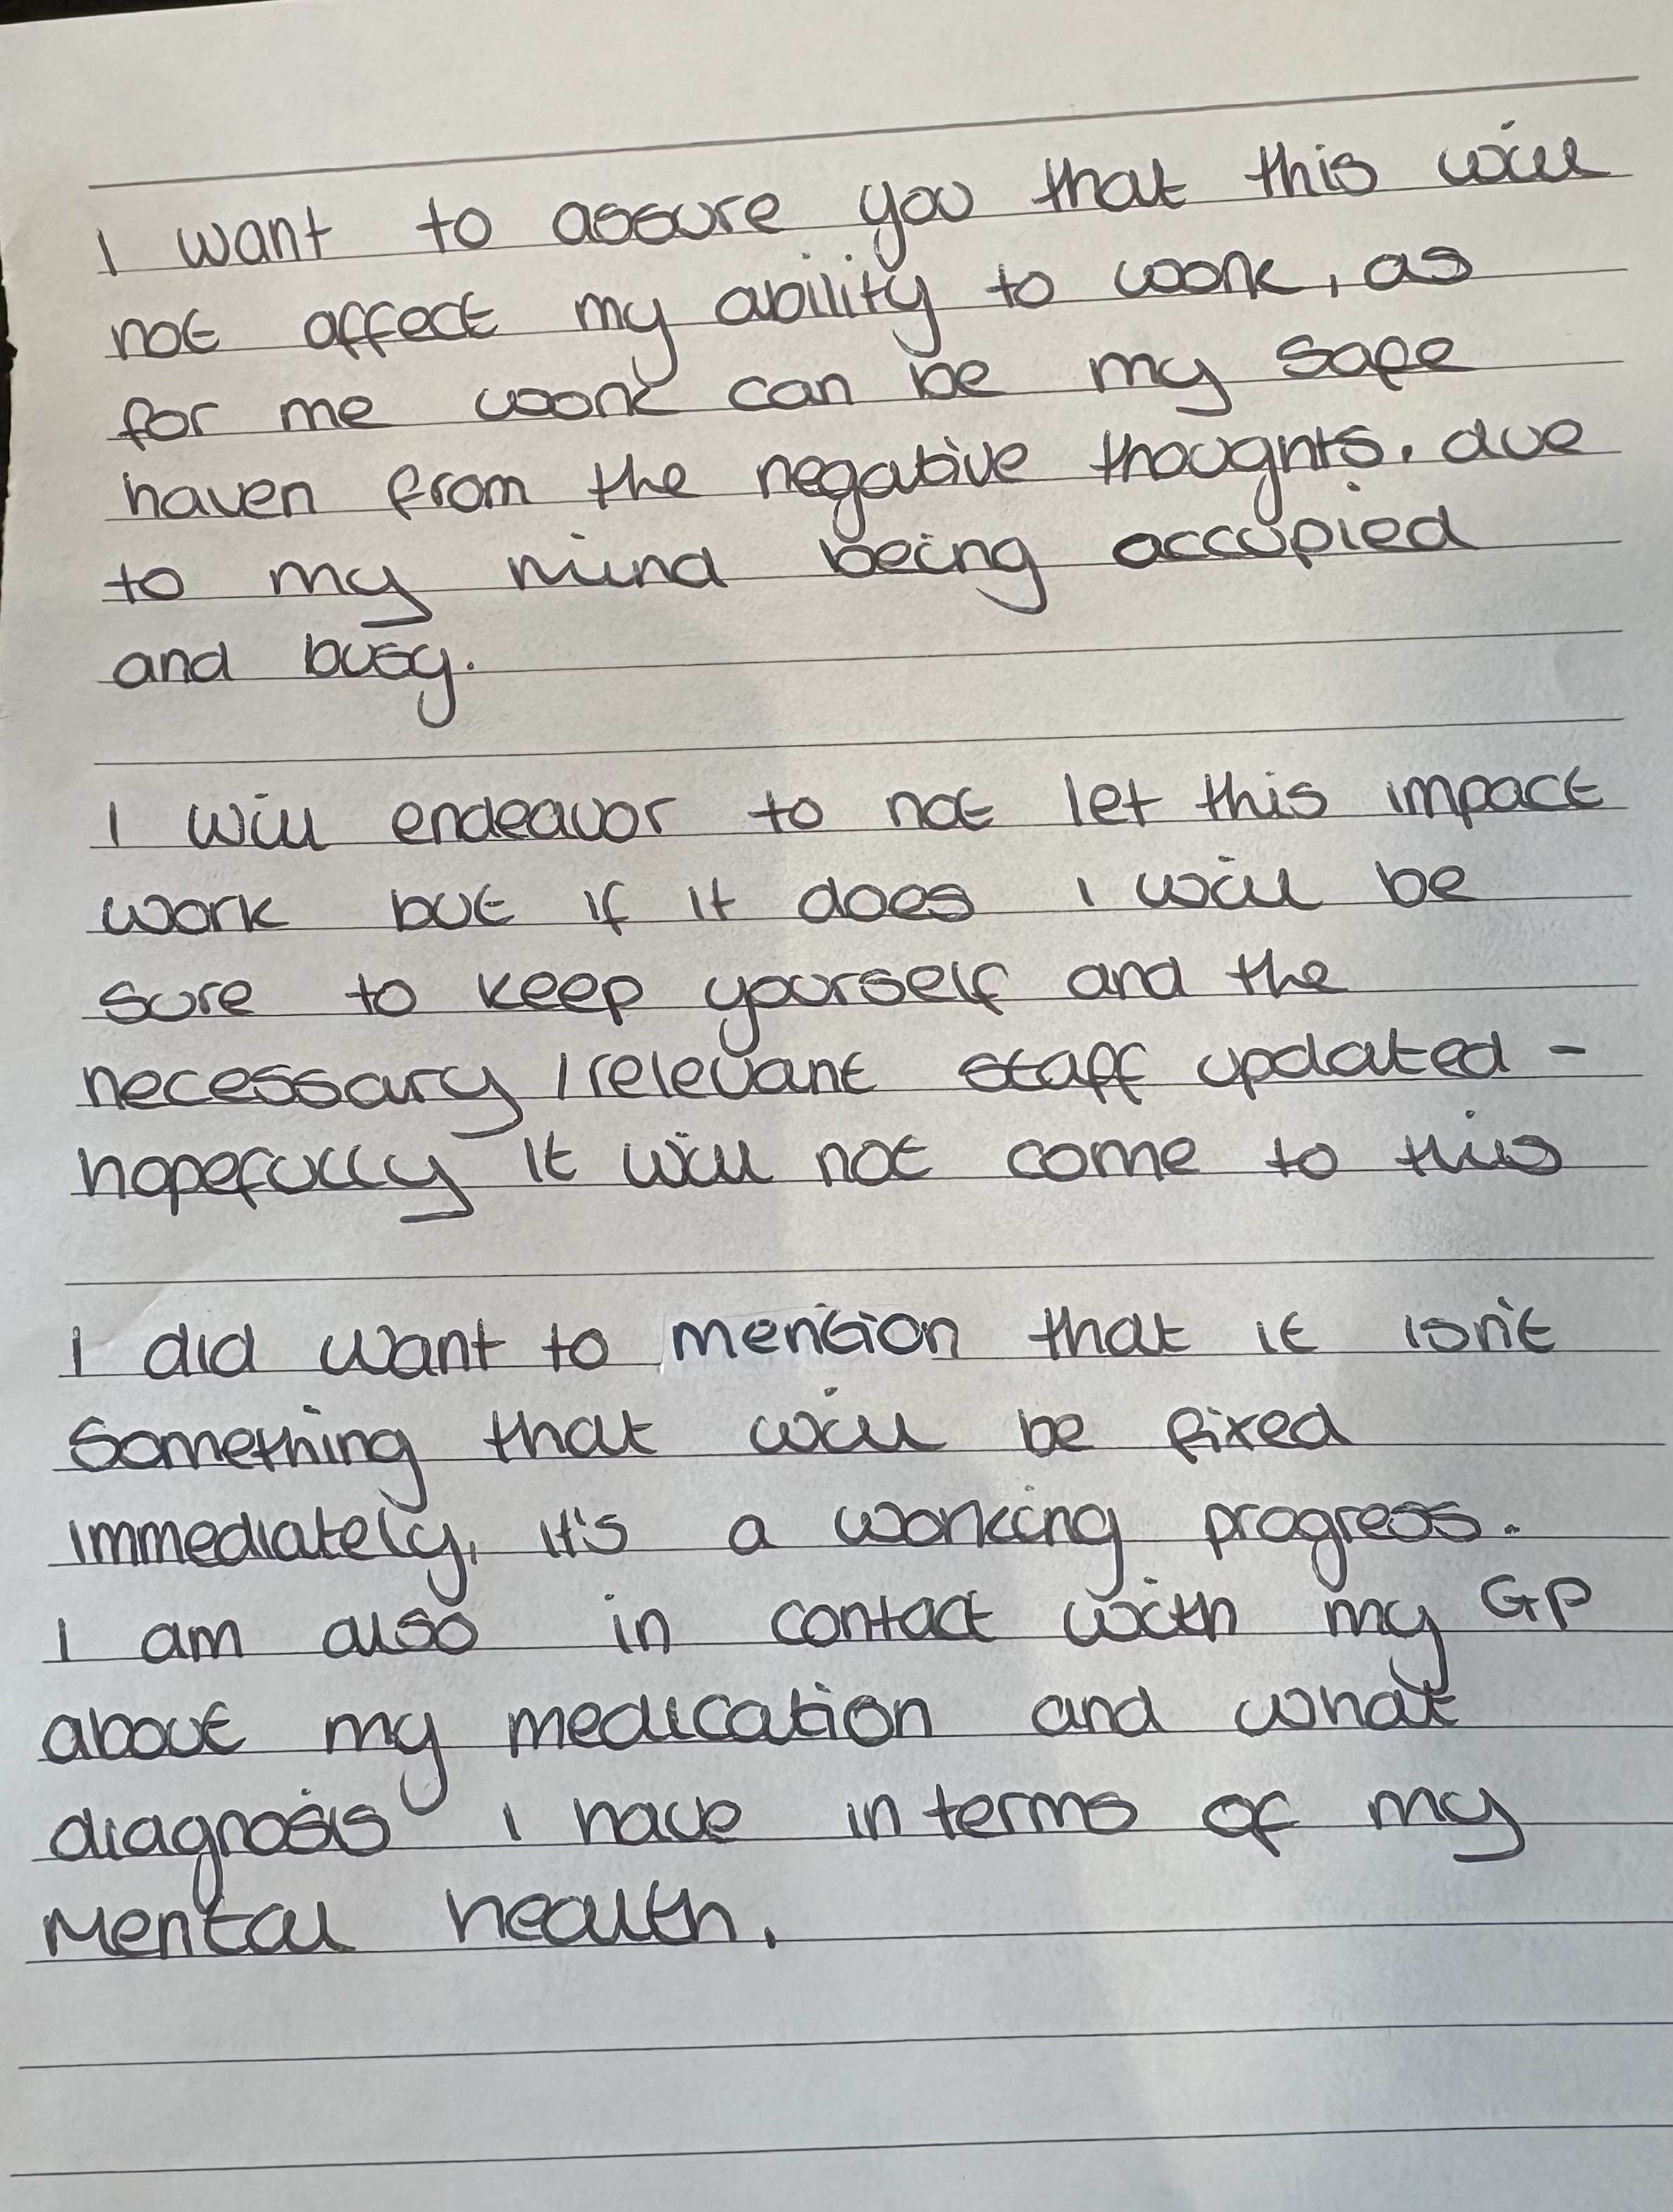 I want to assure you that this will
not affect my ability to work, as
for me work can be my safe
haven from the negative thoughts. due
to my mind being accupied
and busy.
I will endeavor to not let this impact
work but if it does I will be
sure to keep yourself and the
necessary / relevant staff updated -
hopefully it will not come to this
I did want to mention that it isn't
something that will be fixed
immediately, it's a working progress.
I am also in contact with my GP
about my medication and what
diagnosis I have in terms of my
mental health.